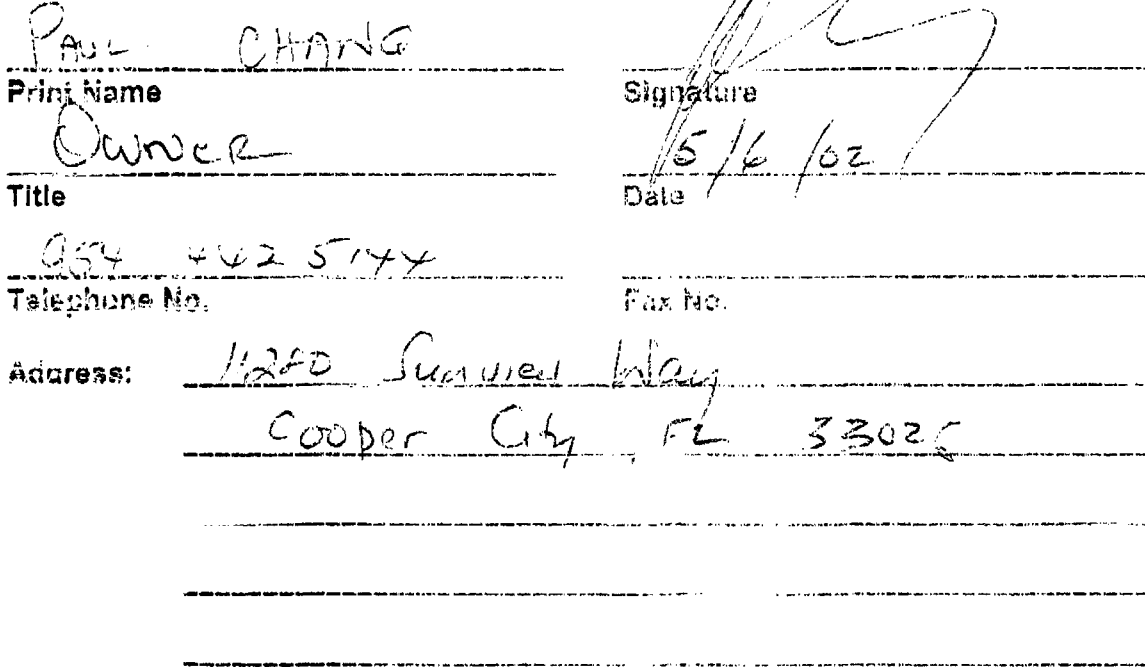 PAUL CHANG
Print Name Signature
OWNER 5/6/02
Title Date
954 442 5144
Telephone No. Fax No.
Address: 11280 Sunview Way
Cooper City, FL 33026